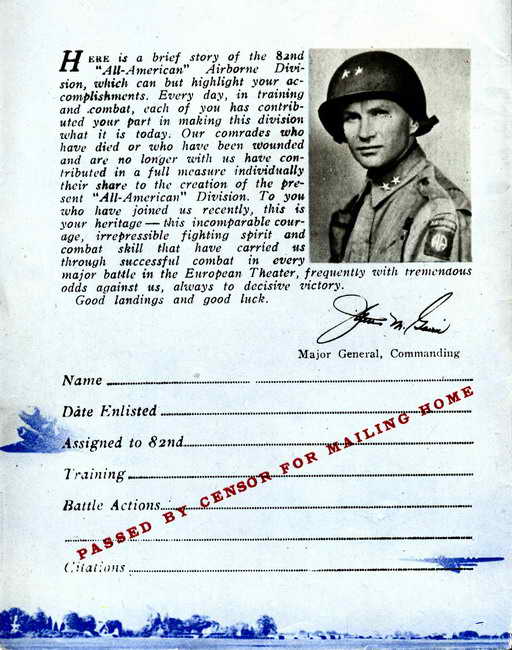 HERE is a brief story of the 82nd
"All-American" Airborne Divi-
sion, which can but highlight your ac-
complishments. Every day, in training
and combat, each of you has contrib-
uted your part in making this division
what it is today. Our comrades who
have died or who have been wounded
and are no longer with us have con-
tributed in a full measure individually
their share to the creation of the pre-
sent "All-American" Division. To you
who have joined us recently, this is
your heritage — this incomparable cour-
age, irrepressible fighting spirit and
combat skill that have carried us
through successful combat in every
major battle in the European Theater, frequently with tremendous
odds against us, always to decisive victory.
Good landings and good luck.
James M. Gavin
Major General, Commanding
Name
Date Enlisted
Assigned to 82nd
Training
Battle Actions
PASSED BY CENSOR FOR MAILING HOME
Citations